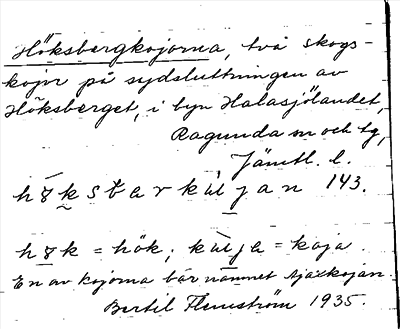 Höksbergkojorna, två skogs-
kojor på sydsluttningen av
Höksberget, i byn Halasjölandet,
Ragunda sn och tg,
Jämtl. l.
143.
= hök; = koja.
En av kojorna bär namnet
Bertil Flemström 1935.